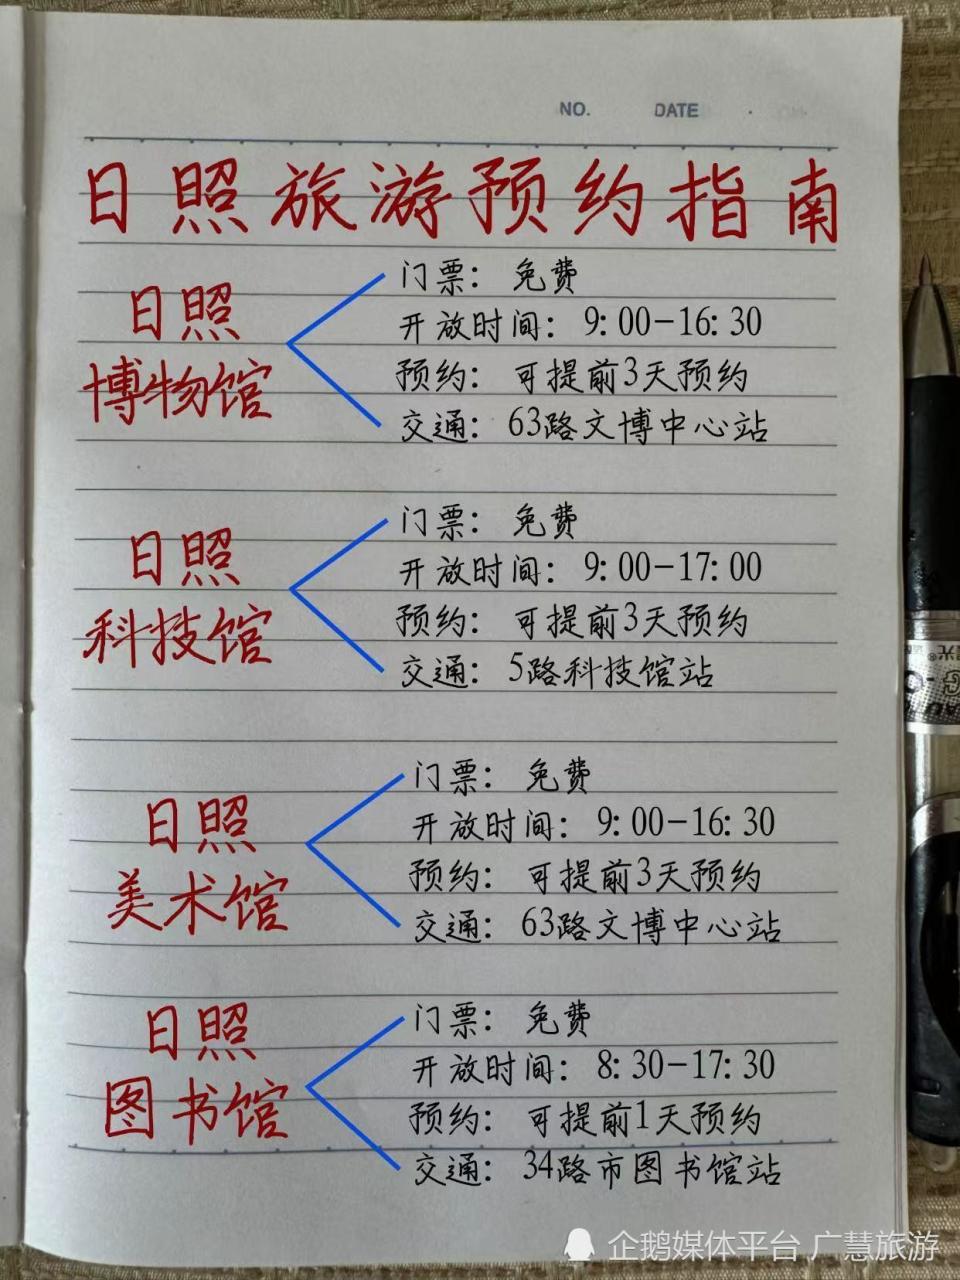 NO. DATE
日照旅游预约指南
日照
博物馆
门票：免费
开放时间：9:00-16:30
预约：可提前3天预约
交通：63路文博中心站
日照
科技馆
门票：免费
开放时间：9:00-17:00
预约：可提前3天预约
交通：5路科技馆站
日照
美术馆
门票：免费
开放时间：9:00-16:30
预约：可提前3天预约
交通：63路文博中心站
日照
图书馆
门票：免费
开放时间：8:30-17:30
预约：可提前1天预约
交通：34路市图书馆站
企鹅媒体平台 广慧旅游